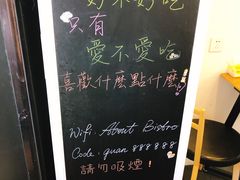 好不好吃
只有
愛不愛吃
喜歡什麼點什麼!
Wifi. About Bistro
Code. guan 888888
請勿吸煙!